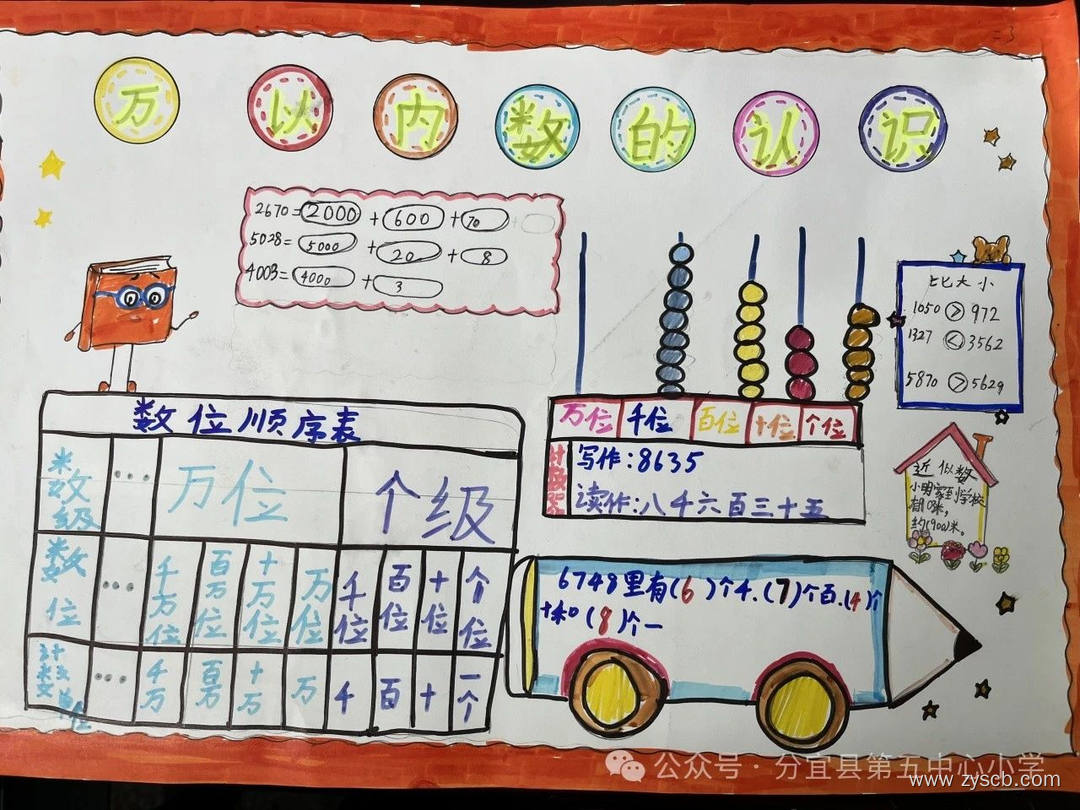 万以内数的认识
2670=2000+600+70
5028=5000+20+8
4003=4000+3
比大小
1050>972
1327<3562
5870>5629
万位 千位 百位 十位 个位
计数器
写作:8635
读作:八千六百三十五
近似数
小明家到学校
约900米。
数位顺序表
数级 … 万位 个级
数位 … 千万位 百万位 十万位 万位 千位 百位 十位 个位
计数单位 … 千万 百万 十万 万 千 百 十 一个
6748里有(6)个千.(7)个百.(4)个
十和(8)个一
公众号·分宜县第五中心小学
www.zyscb.com